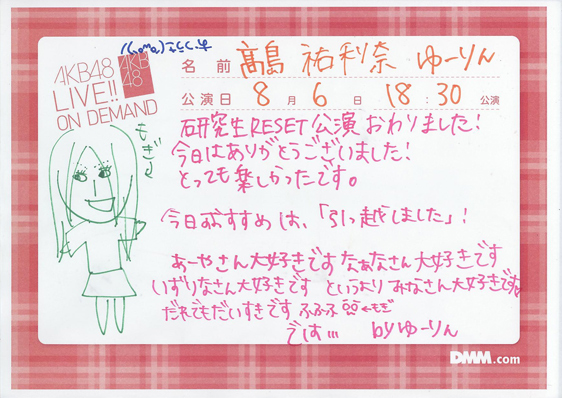 AKB48
LIVE!!
ON DEMAND
AKB
48
名前 高島 祐利奈 ゆーりん
公演日 8月6日 18:30公演
もぎ
研究生RESET公演おわりました!
今日はありがとうございました!
とっても楽しかったです。
今日のおすすめは、「引っ越しました」!
あーやさん大好きです なぁなさん大好きです
いずりなさん大好きです というより みなさん大好きです
だれでもだいすきです ふふふ ←もぎ
では… byゆーりん
DMM.com